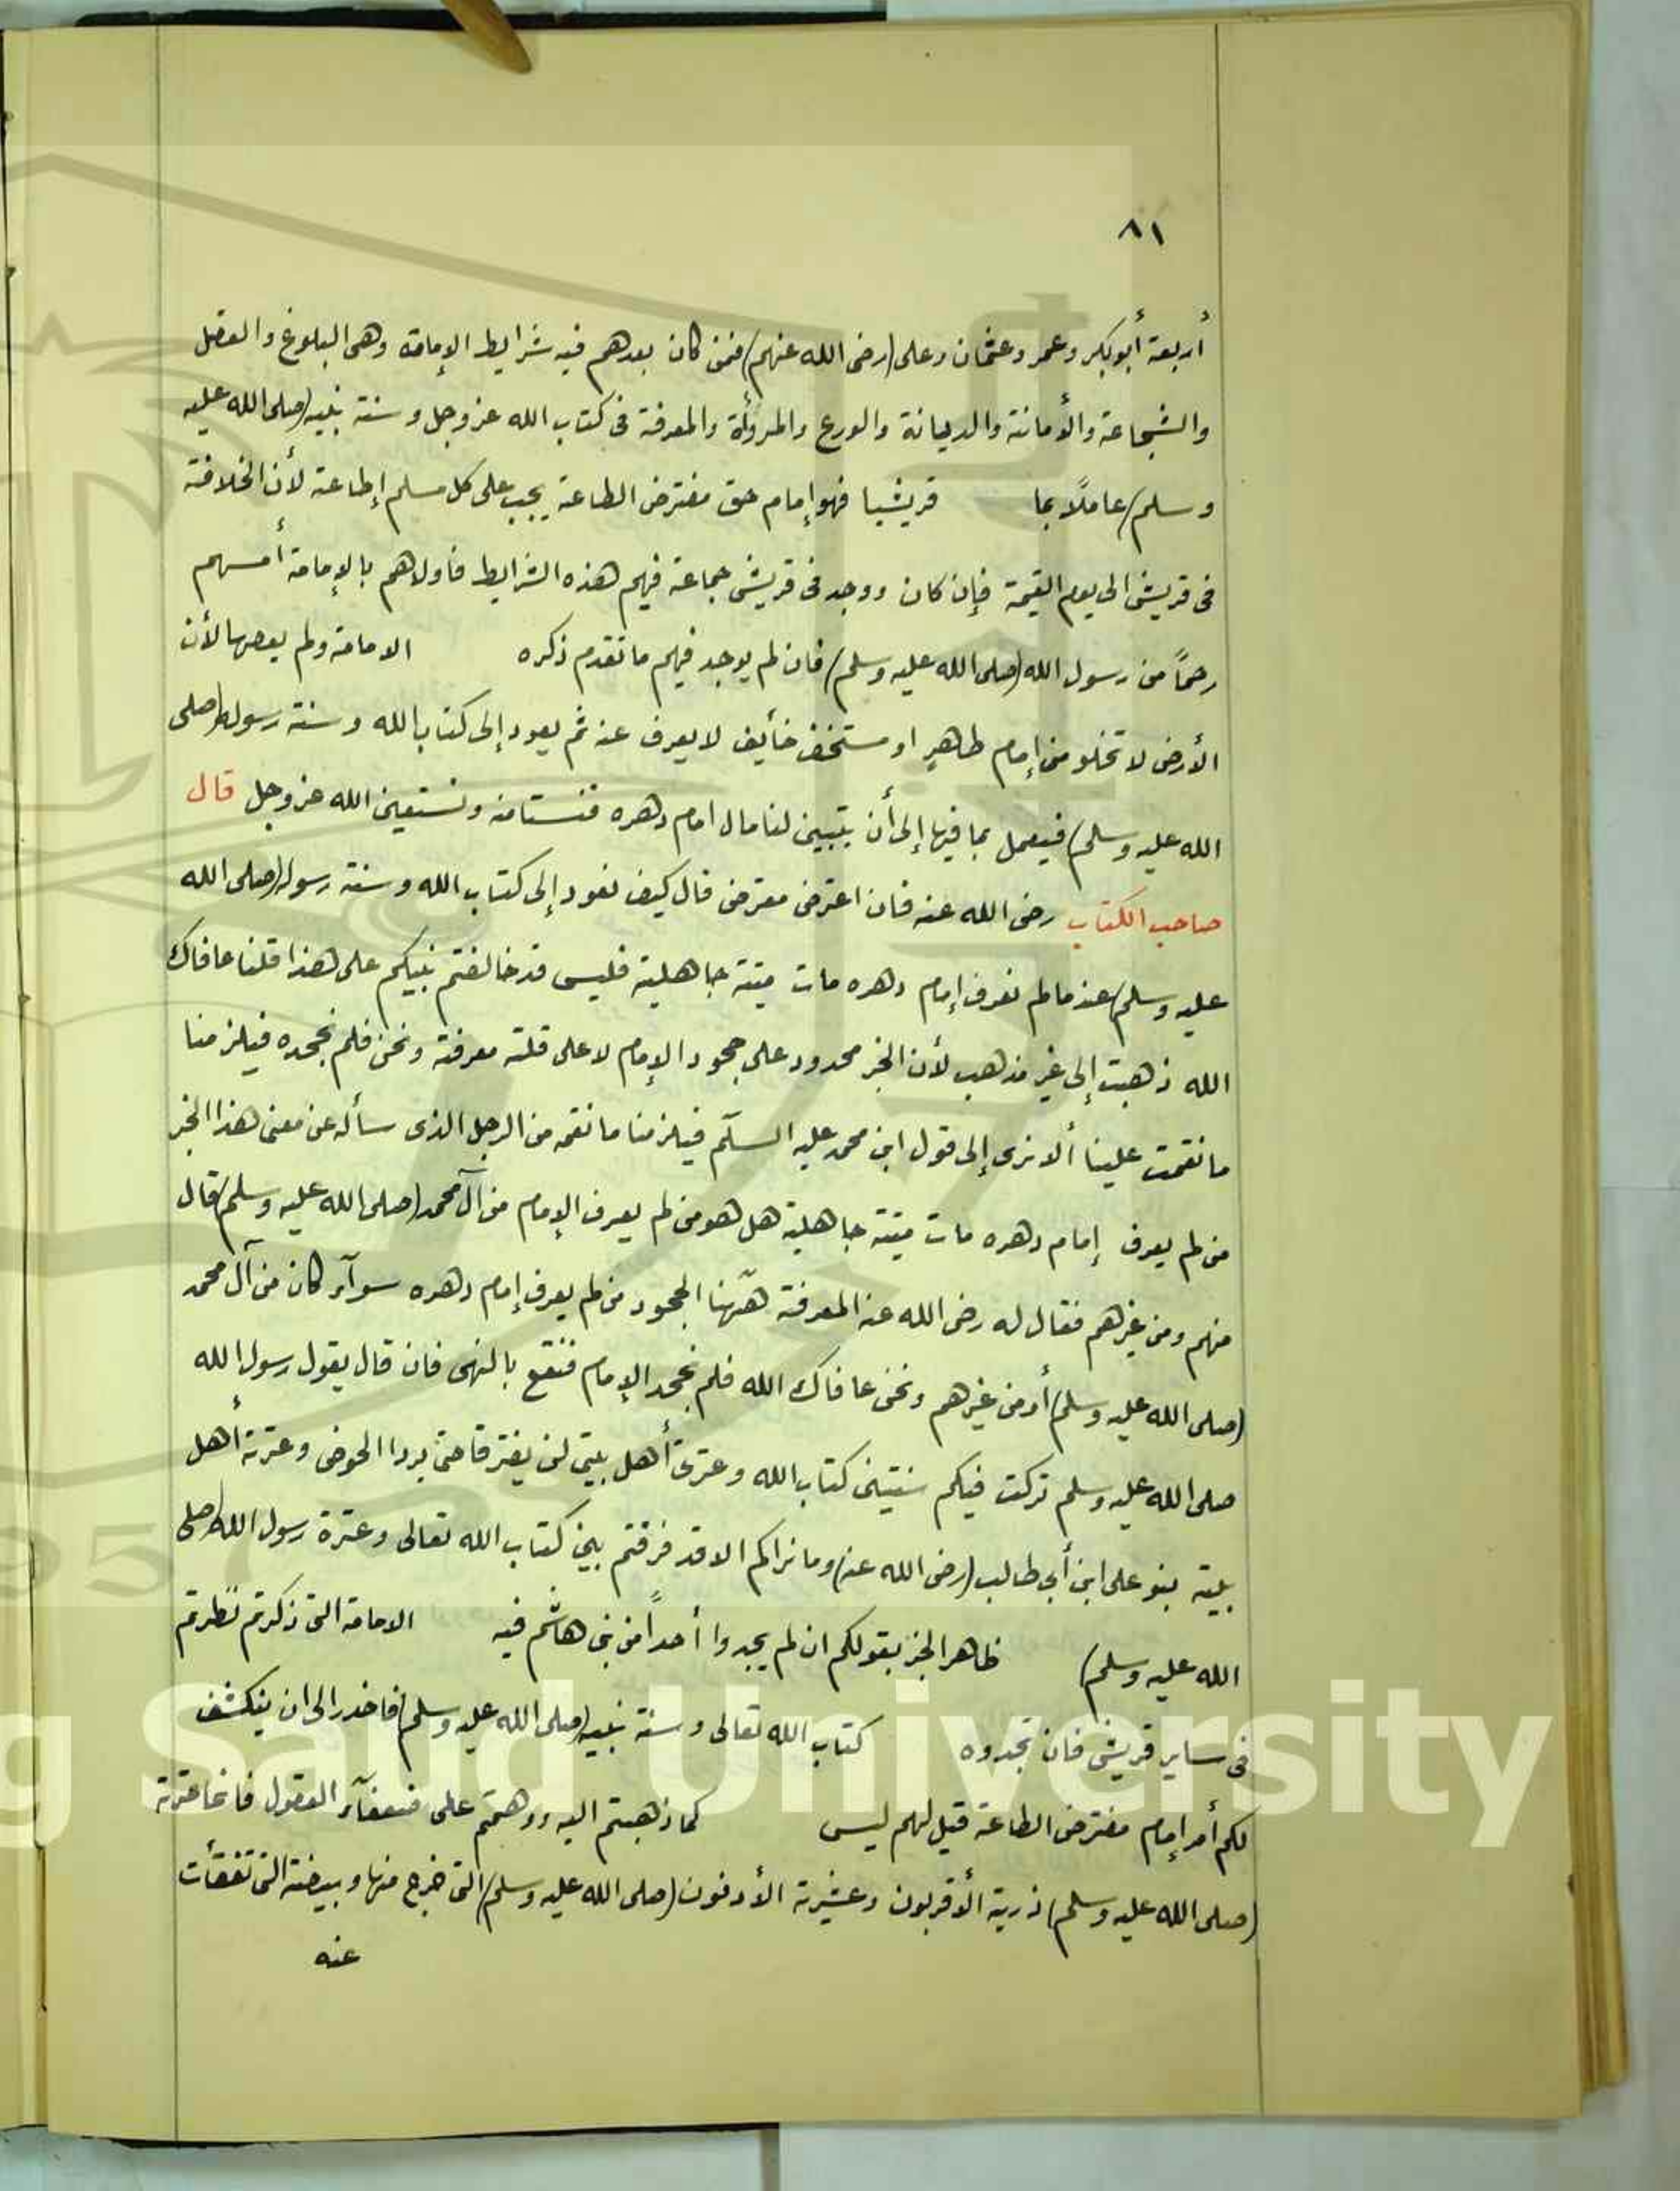 ٨١
أربعة أبوبكر وعمر وعثمان وعلى (رضى الله عنهم) فمن كان بعدهم فيه شرايط الإمامة وهى البلوغ والعقل
والشجاعة والأمانة والديانة والورع والمروأة والمعرفة فى كتاب الله عز وجل وسنة نبيه (صلى الله عليه
وسلم) عاملاً بما قريشيا فهو إمام حق مفترض الطاعة يجب على كل مسلم إطاعة لأن الخلافة
فى قريش الى يوم القيمة فإن كان ووجد فى قريش جماعة فيهم هذه الشرايط فاولاهم بالإمامة أمسهم
رحمًا من رسول الله (صلى الله عليه وسلم) فان لم يوجد فيهم ما تقدم ذكره الامامة ولم يعصها لأن
الأرض لا تخلو من إمام ظاهر او مستخف خأيف لا يعرف عنه ثم يعود إلى كتاب الله وسنة رسوله (صلى
الله عليه وسلم) فيعمل بما فيها إلى أن يتبين لنا مال امام دهره فنستامنه ونستعين الله عز وجل قال
صاحب الكتاب رضى الله عنه فان اعترض معترض قال كيف نعود إلى كتاب الله وسنة رسوله (صلى الله
عليه وسلم) عند ما لم نعرف إمام دهره مات ميتة جاهلية فليس قد خالفتم نبيكم على هذا قلنا عافاك
الله ذهبت إلى غير مذهب لأن الخبر محدود على جحود الإمام لا على قلته معرفة ونحن فلم نجحده فيلزمنا
ما نقمت علينا ألا نرى إلى قول ابن محمد عليه السلام فيلزمنا ما نقمه من الرجل الذى سأله عن معنى هذا الخبر
من لم يعرف إمام دهره مات ميتة جاهلية هل هو من لم يعرف الإمام من آل محمد (صلى الله عليه وسلم) قال
منهم ومن غيرهم فقال له رضى الله عنه المعرفة هٓهنا الجحود من لم يعرف إمام دهره سوآء كان من آل محمد
(صلى الله عليه وسلم) أو من غيرهم ونحن عافاك الله فلم نجحد الإمام فنقع بالنهى فان قال يقول رسول الله
صلى الله عليه وسلم تركت فيكم سنتين كتاب الله وعترتى أهل بيتى لن يفترقا حتى يردا الحوض وعترته أهل
بيته بنو على ابن أبى طالب (رضى الله عنه) وما نراكم الا قد فرقتم بين كتاب الله تعالى وعترة رسول الله (صلى
الله عليه وسلم) ظاهر الخبر بقولكم ان لم يجدوا أحداً من بنى هاشم فيه الامامة التى ذكرتم نظرتم
فى ساير قريش فان تجدوه كتاب الله تعالى وسنة نبيه (صلى الله عليه وسلم) فاخذر الى ان ينكشف
لكم أمر إمام مفترض الطاعة قيل لهم ليس كما ذهبتم اليه ووهمتم على ضعفآء العقول فانما عترته
(صلى الله عليه وسلم) ذريته الأقربون وعشيرته الأدنون (صلى الله عليه وسلم) التى خرج منها وبيضته التى تفقأت
عنه
King Saud University
1957